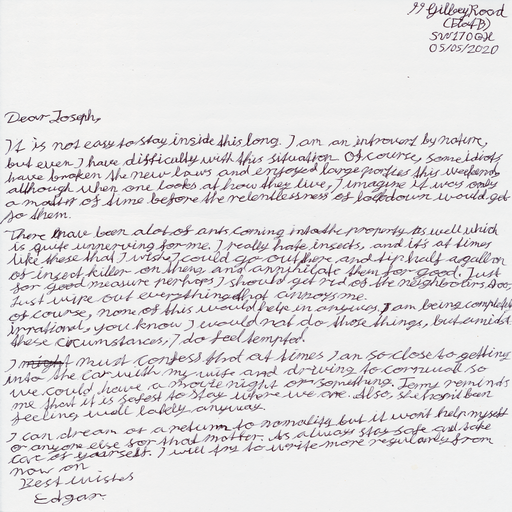 99 Gilbey Road
(Flat B)
SW17 0QH
05/05/2020
Dear Joseph,
It is not easy to stay inside this long. I am an introvert by nature,
but even I have difficulty with this situation. Of course, some idiots
have broken the new laws and enjoyed large parties this weekend,
although when one looks at how they live, I imagine it was only
a matter of time before the relentlessness of lockdown would get
to them.
There have been alot of ants coming into the property as well which
is quite unnerving for me. I really hate insects, and it's at times
like these that I wish I could go out there, and tip half a gallon
of insect killer on them, and annihilate them for good. Just
for good measure perhaps I should get rid of the neighbours too,
Just wipe out everything that annoys me.
Of course, none of this would help in anyway, I am being completely
irrational, you know I would not do those things, but amidst
these circumstances, I do feel tempted.
I might must confess that at times I am so close to getting
into the car with my wife and driving to Cornwall so
we could have a movie night or something. Jenny reminds
me that it is safest to stay where we are. Also, she hasn't been
feeling well lately anyway.
I can dream of a return to normality but it wont help myself
or anyone else for that matter. As always stay safe and take
care of yourself. I will try to write more regularly from
now on
Best wishes
Edgar.